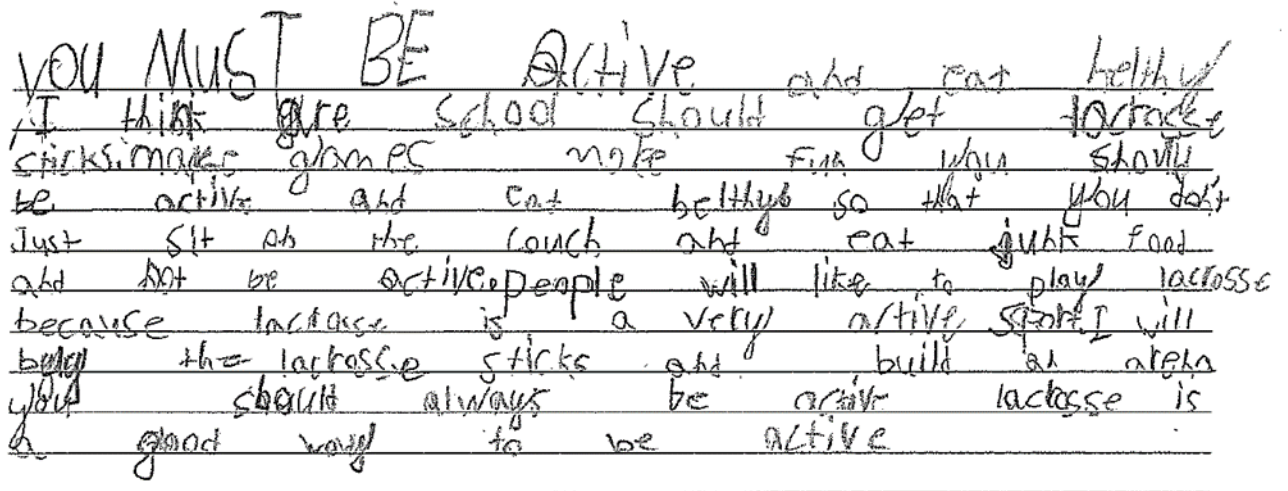 you MUST BE Active and eat helthy
I think are school should get lacrosse
sticks. makes games more fun you should
be active and eat helthys so that you don't
Just sit on the couch and eat junk food
and not be active. people will like to play lacrosse
because lacrosse is a very active sport. I will
buy the lacrosse sticks and build an arena
you should always be active lacrosse is
a good way to be active